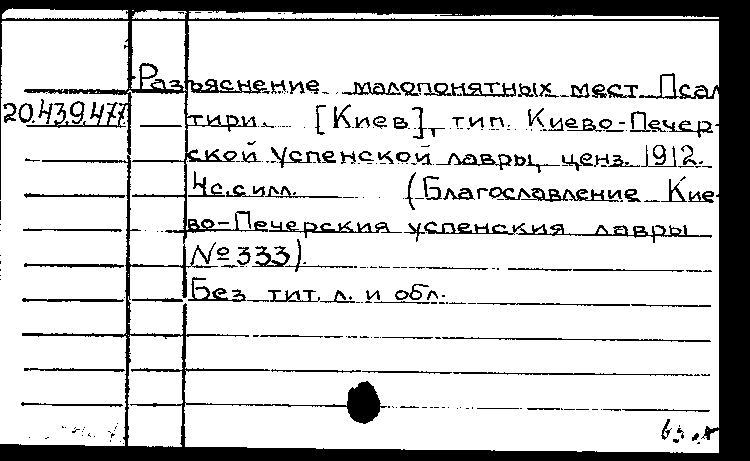 Разъяснение малопонятных мест Псал
20.43.9.477 тири. [Киев], тип. Киево-Печер-
ской Успенской лавры, ценз. 1912.
4с.силл. (Благославление Кие-
во-Печерския успенския лавры
№333).
Без тит. л. и обл.